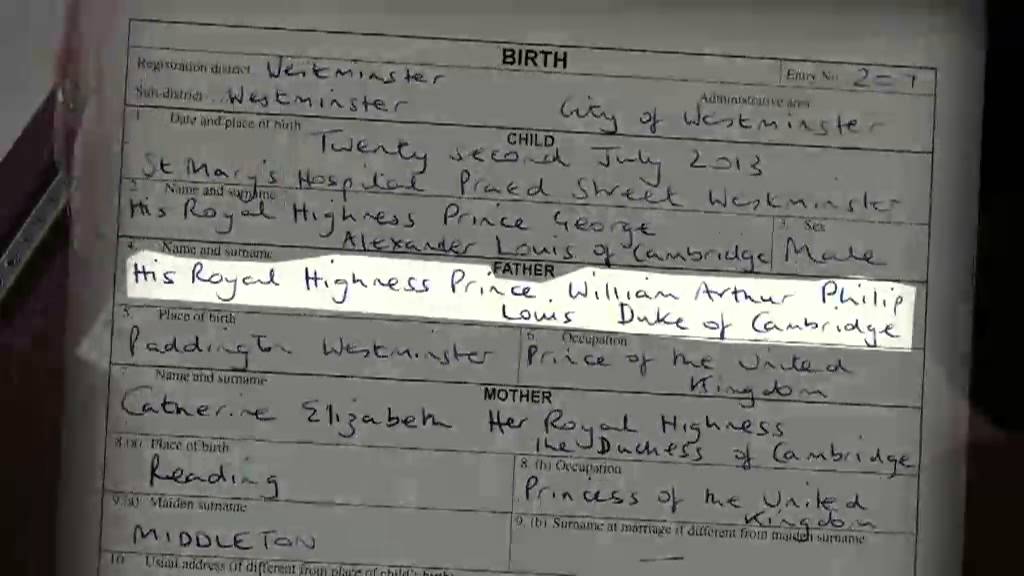 BIRTH
Registration district Westminster
Entry No.
Sub-district Westminster
Administrative area
City of Westminster
1. Date and place of birth
CHILD
Twenty second July 2013
St Mary's Hospital Praed Street Westminster
2. Name and surname
3. Sex
His Royal Highness Prince George
Alexander Louis of Cambridge
Male
4. Name and surname
FATHER
His Royal Highness Prince William Arthur Philip
Louis Duke of Cambridge
5. Place of birth
6. Occupation
Paddington Westminster
Prince of the United
Kingdom
7. Name and surname
MOTHER
Catherine Elizabeth Her Royal Highness
the Duchess of Cambridge
8.(a) Place of birth
8. (b) Occupation
Reading
Princess of the United
Kingdom
9.(a) Maiden surname
9. (b) Surname at marriage if different from maiden surname
MIDDLETON
—
10. Usual address (if different from place of child's birth)